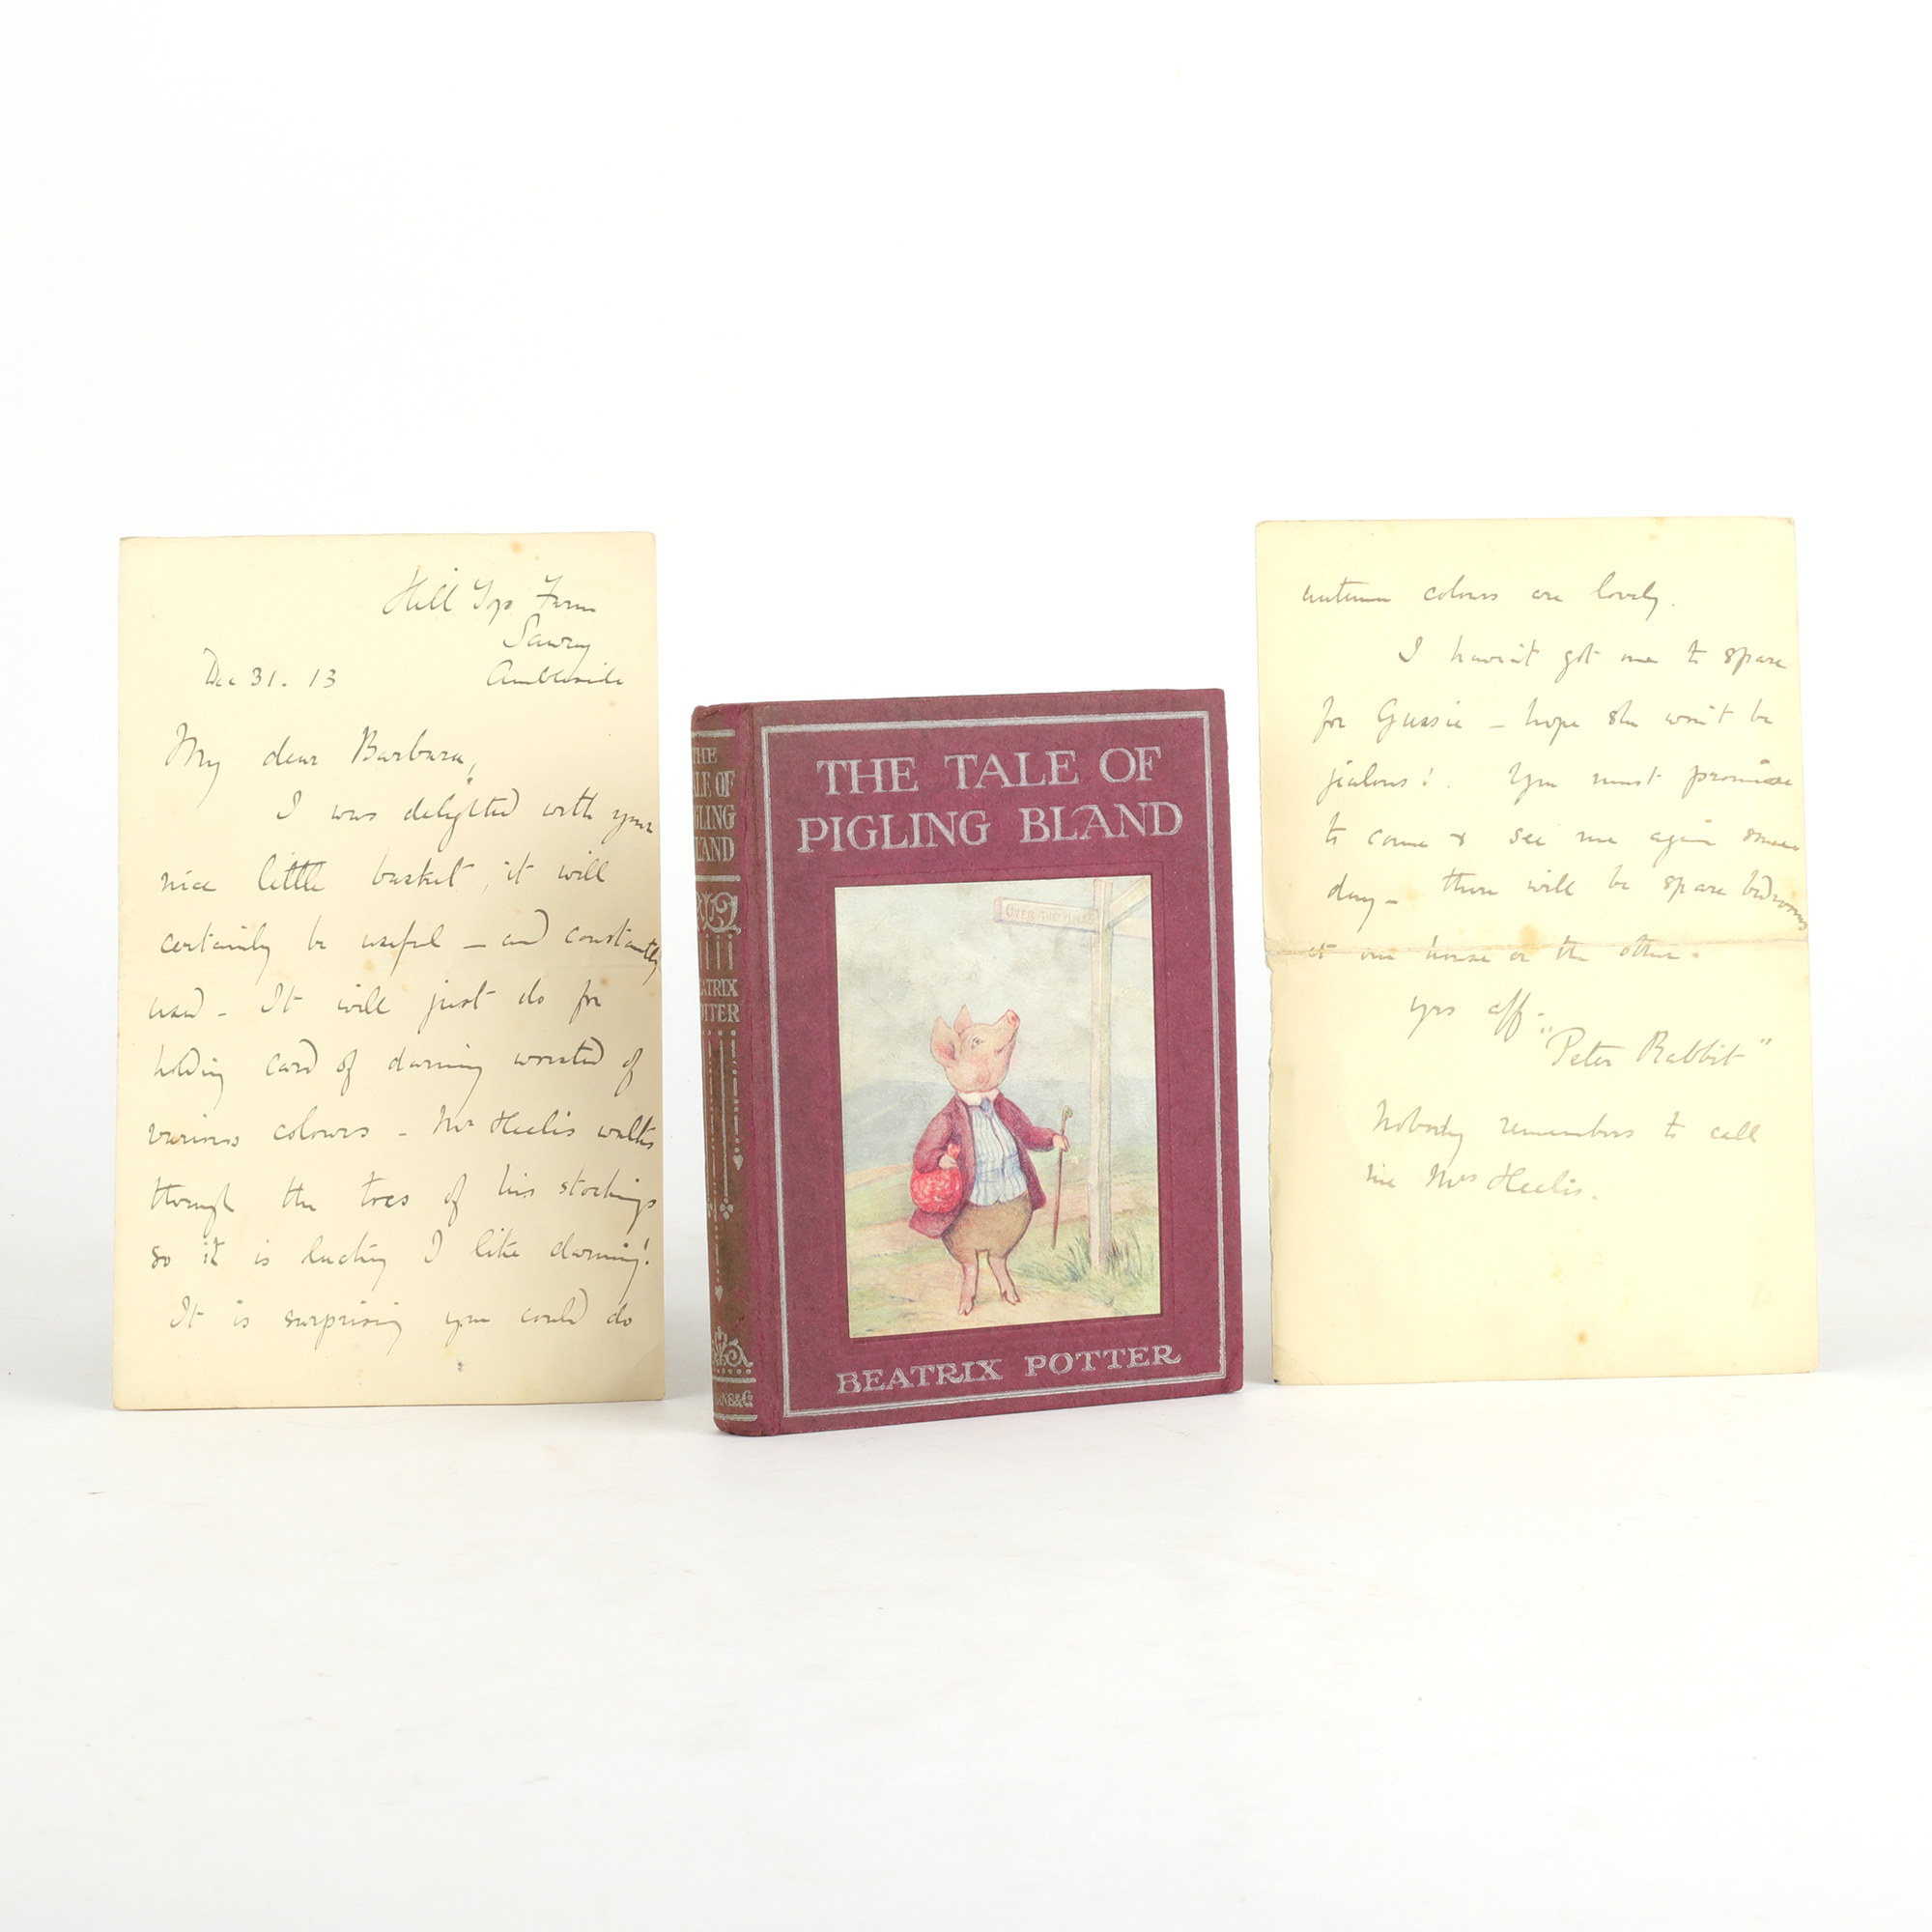 Hill Top Farm
Sawrey
Ambleside
Dec 31. 13
My dear Barbara,
I was delighted with your
nice little basket, it will
certainly be useful - and constantly
used - It will just do for
holding card of darning worsted of
various colours - Mr Heelis walks
through the toes of his stockings
so it is lucky I like darning!
It is surprising you could do
THE
TALE OF
PIGLING
BLAND
BEATRIX
POTTER
THE TALE OF
PIGLING BLAND
OVER THE HILLS
BEATRIX POTTER
autumn colours are lovely.
I haven't got one to spare
for Gussie - hope she won't be
jealous! You must promise
to come & see me again some
day - there will be spare bedrooms
at one house or the other.
yrs aff-
"Peter Rabbit"
Nobody remembers to call
me Mrs Heelis.